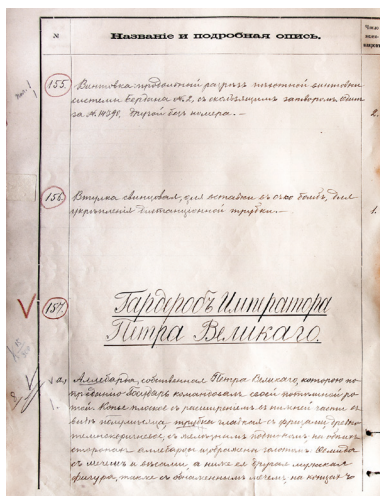 N
Названіе и подробная опись.
155. Винтовка продольный разрѣзъ пѣхотной винтовки
системы Бердана №2, съ скользящимъ затворомъ, одна
за № 14391, другой безъ номера. —
2.
156. Втулка свинцовая, для вставки въ очко бомбъ, для
укрѣпленія дистанціонной трубки. —
1.
157. Гардеробъ Императора
Петра Великаго.
а) Аллебарда, собственная Петра Великаго, которою по
преданію Государь командовалъ своей потѣшной ро-
той. Копье плоское съ расширеніемъ въ нижней части въ
видѣ полумѣсяца, трубка гладкая съ древко
темнокоричневое, съ желѣзнымъ на одной
сторонѣ аллебарды изображена
съ мечемъ и вѣсами, а ниже ея другая мужская
фигура, также съ обнаженнымъ мечемъ